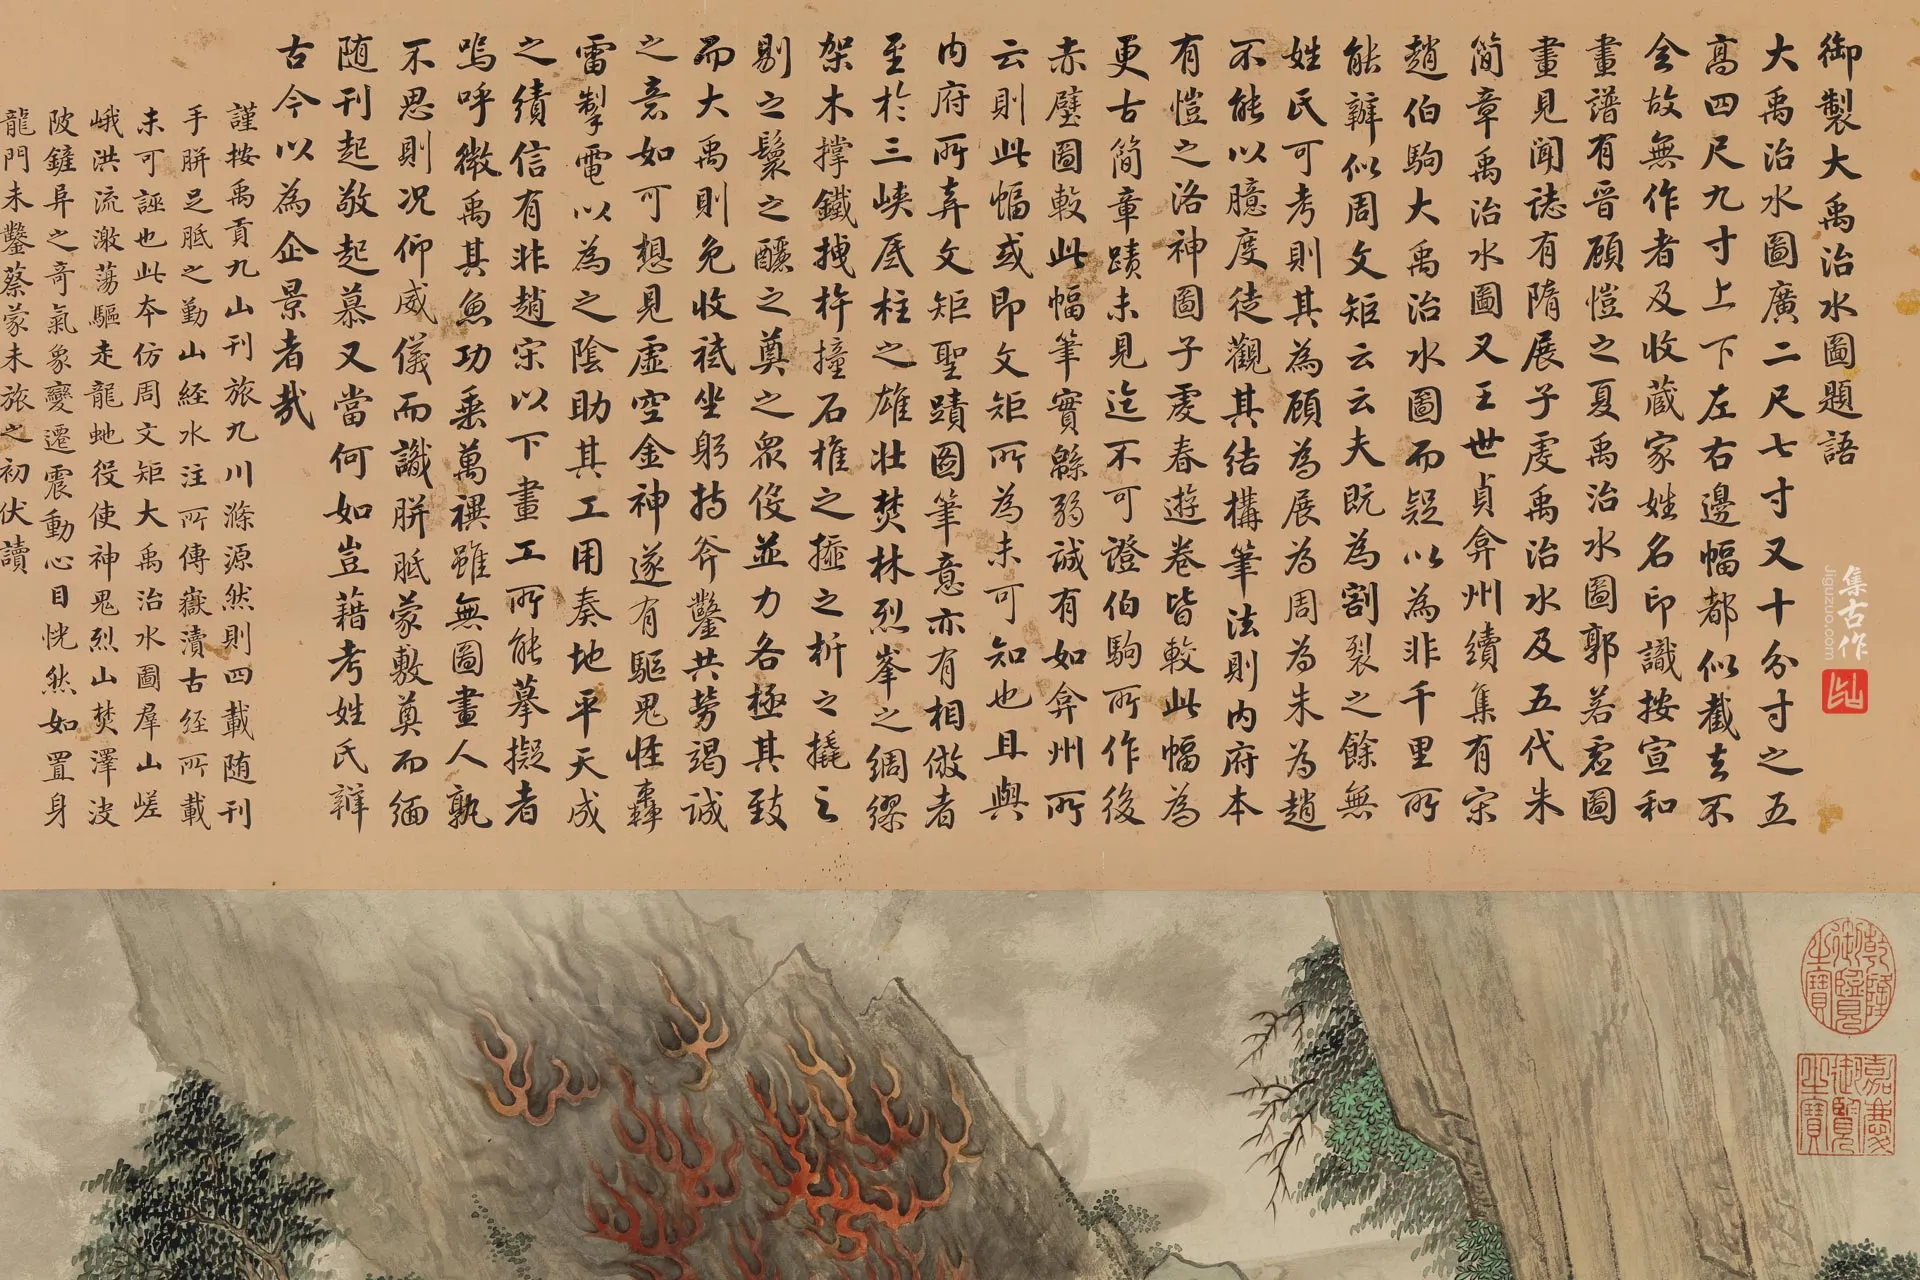 御製大禹治水圖題語
大禹治水圖廣二尺七寸又十分寸之五
高四尺九寸上下左右邊幅都似截去不
全故無作者及收蔵家姓名印識按宣和
畫譜有晉顧愷之夏禹治水圖郭若虛圖
畫見聞誌有隋展子虔禹治水及五代朱
簡章禹治水圖又王世貞弇州續集有宋
趙伯駒大禹治水圖而疑以為非千里所
能辦似周文矩云云夫既為割裂之餘無
姓氏可考則其為顧為展為周為朱為趙
不能以臆度徒觀其結構筆法則內府本
有愷之洛神圖子虔春遊卷皆較此幅為
更古簡章蹟未見迄不可證伯駒所作後
赤壁圖較此幅筆實緜弱誠有如弇州所
云則此幅或即文矩所為未可知也且與
內府所弆文矩聖蹟圖筆意亦有相倣者
至於三峽底柱之雄壯焚林烈峯之綢繆
架木撑鐵拽杵撞石榷之㨖之析之撬之
剔之鬉之釃之奠之衆伇並力各極其致
而大禹則免收袪坐躬持斧鑿共勞竭誠
之意如可想見虛空金神遂有驅鬼怪轟
雷掣電以為之陰助其工用奏地平天成
之績信有非趙宋以下畫工所能摹擬者
嗚呼微禹其魚功乗萬禩雖無圖畫人孰
不思則况仰威儀而識胼胝蒙敷奠而緬
随刊起敬起慕又當何如豈藉考姓氏辨
古今以為企景者哉
謹按禹貢九山刊旅九川滌源然則四載随刊
手胼足胝之勤山経水注所傳嶽瀆古經所載
未可誣也此本仿周文矩大禹治水圖羣山嵯
峨洪流激蕩驅走龍虵役使神鬼烈山焚澤浚
陂鏟舁之奇氣象變遷震動心目恍然如置身
龍門未鑿蔡蒙未旅之初伏讀
集古作
Jiguzuo.com
乾隆御覽之寶
嘉慶御覽之寶